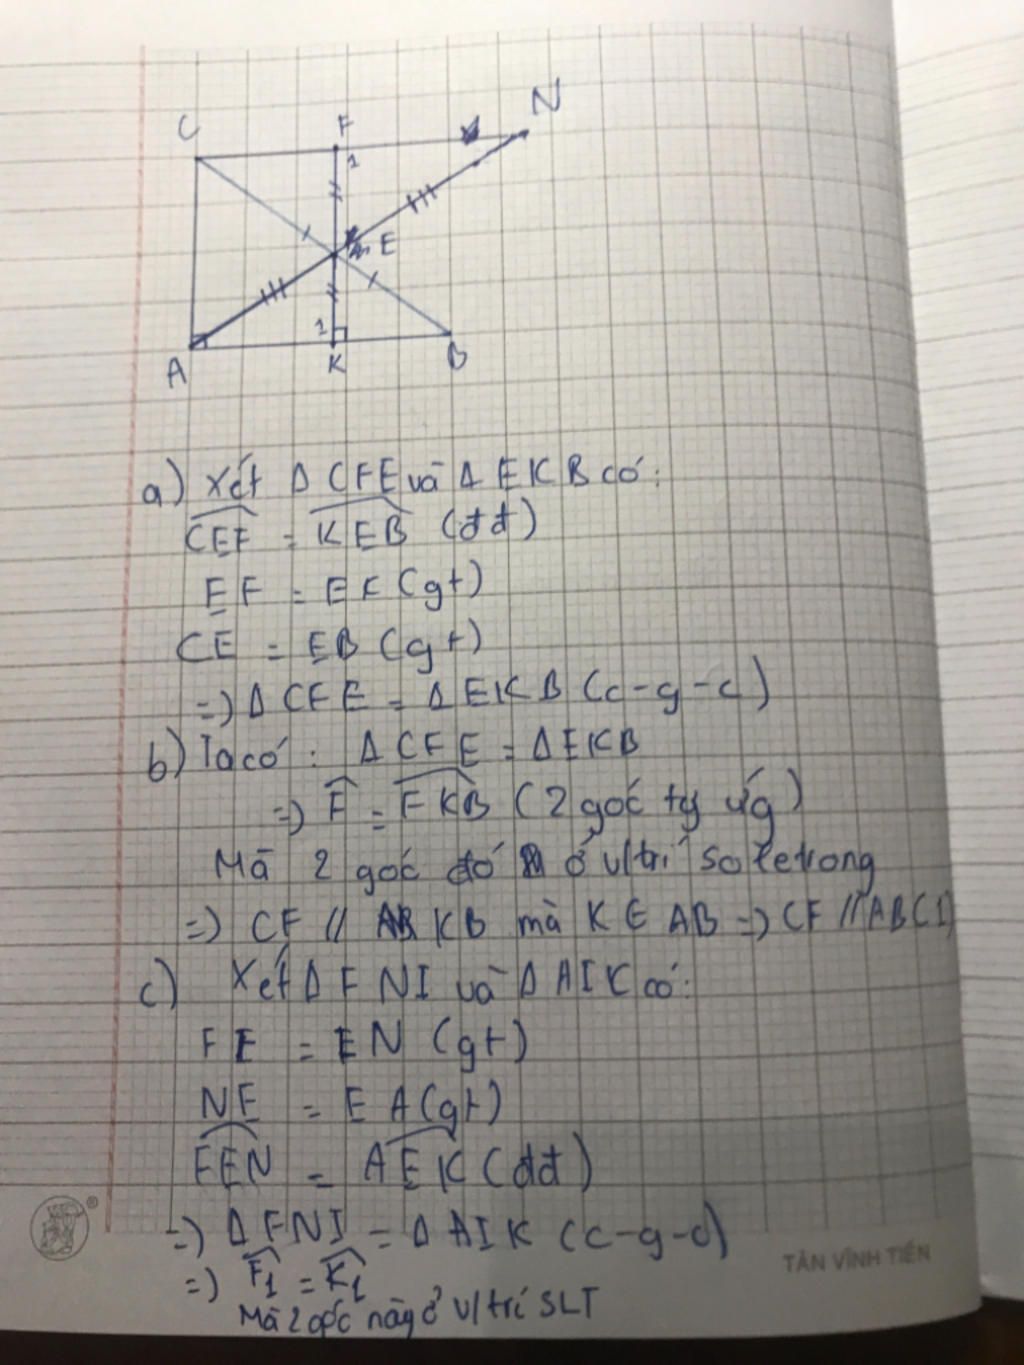 C F N
1
E
1
A K B
a) Xét Δ CFE và Δ EKB có:
CEF = KEB (đđ)
EF = EK (gt)
CE = EB (gt)
=) Δ CFE = Δ EKB (c-g-c)
b) Ta có: Δ CFE = Δ EKB
=) F = FKB (2 góc tg ứg)
Mà 2 góc đó ở v/trí so le trong
=) CF // KB mà K ∈ AB =) CF // AB (1)
c) Xét Δ FNI và Δ AIK có:
FE = EN (gt)
NE = EA (gt)
FEN = AEK (đđ)
=) Δ FNI = Δ AIK (c-g-c)
=) F1 = K1
Mà 2 góc này ở v/trí SLT
TÂN VĨNH TIẾN